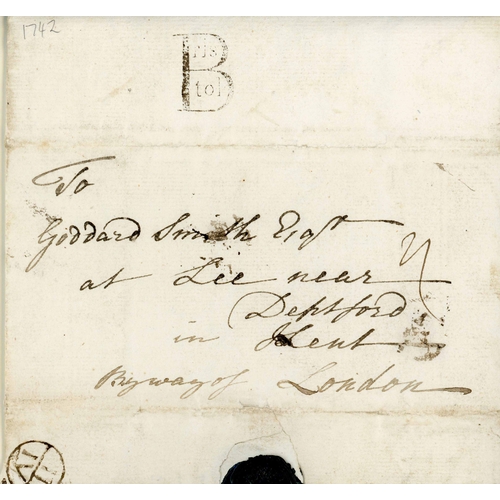 1742
B
ris
tol
To
Goddard Smith Esqr
at Lee near
Deptford
in Kent
By way of London